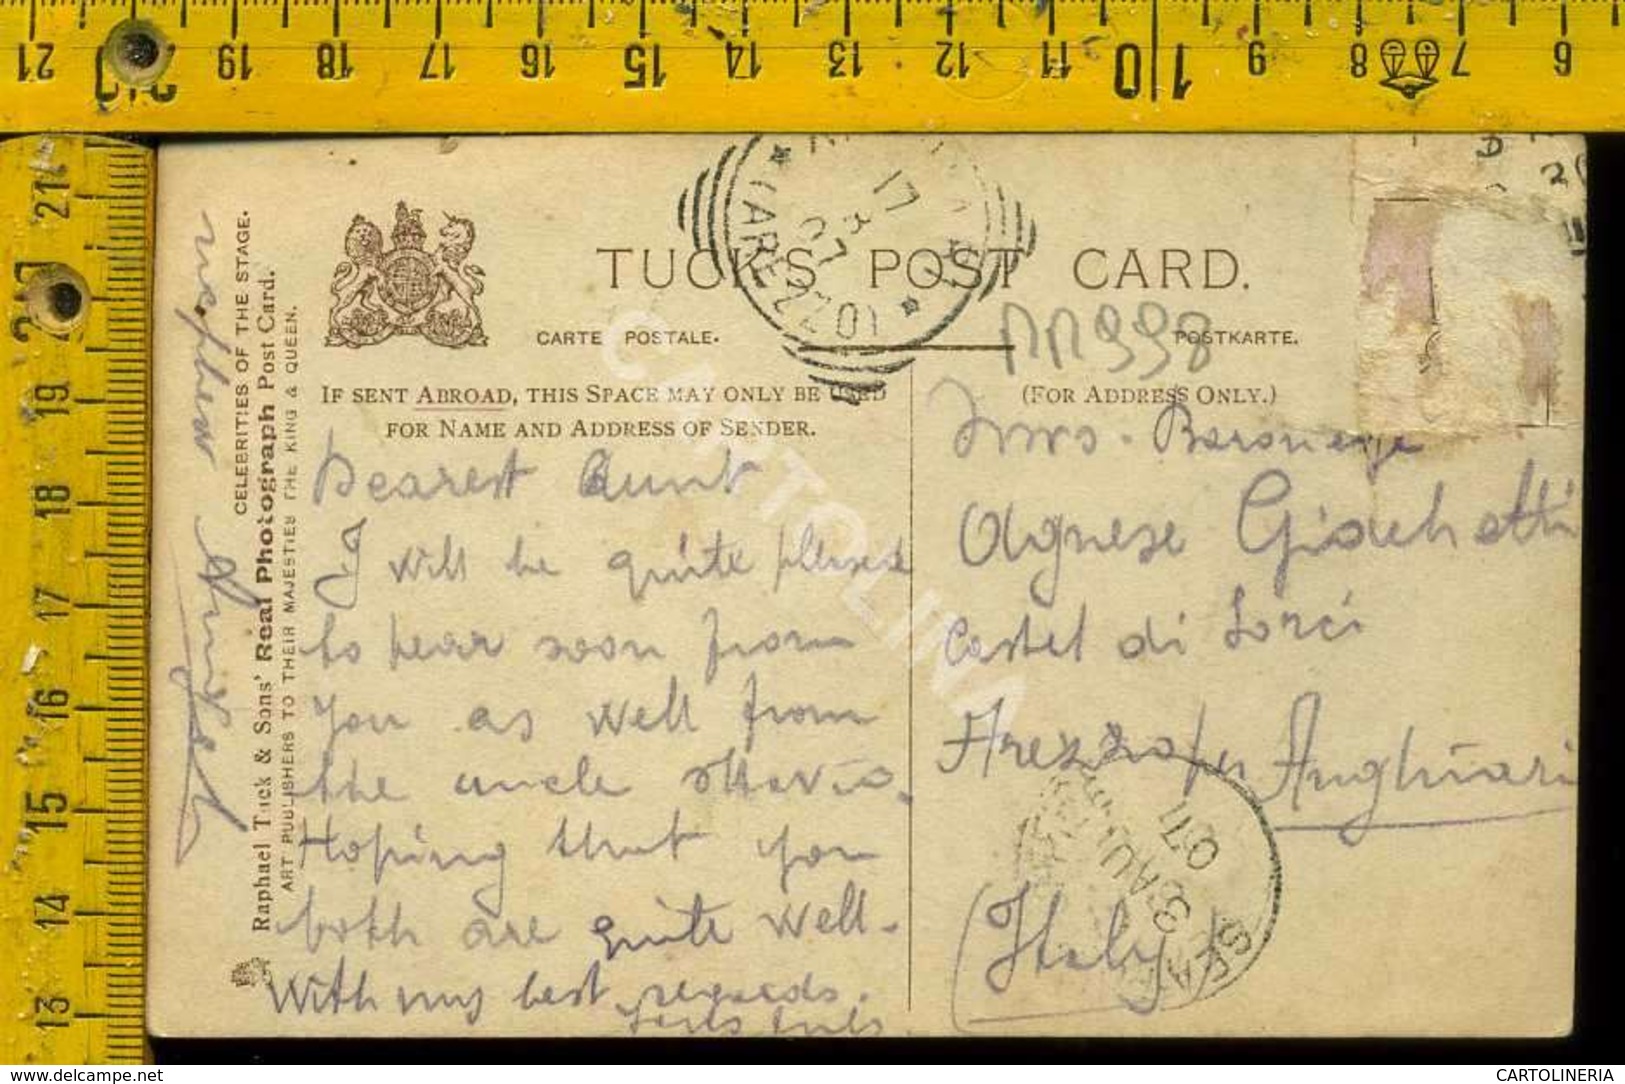 21 20 19 18 17 16 15 14 13 12 11 10 9 8 7 6
21
20
19
18
17
16
15
14
13
TUCK'S POST CARD.
CARTE POSTALE. POSTKARTE.
IF SENT ABROAD, THIS SPACE MAY ONLY BE USED
FOR NAME AND ADDRESS OF SENDER.
(FOR ADDRESS ONLY.)
(AREZZO)
17 8 07
CELEBRITIES OF THE STAGE.
Raphael Tuck & Sons' Real Photograph Post Card.
ART PUBLISHERS TO THEIR MAJESTIES THE KING & QUEEN.
Dearest Aunt
I will be quite pleased
to hear soon from
you as well from
the uncle Ottavio.
Hoping that you
both are quite well.
With my best regards.
nephew
Agnese Giachetti
Castel di Sorci
Arezzo per Anghiari
(Italy)
AU
07
CARTOLINA
www.delcampe.net
CARTOLINERIA